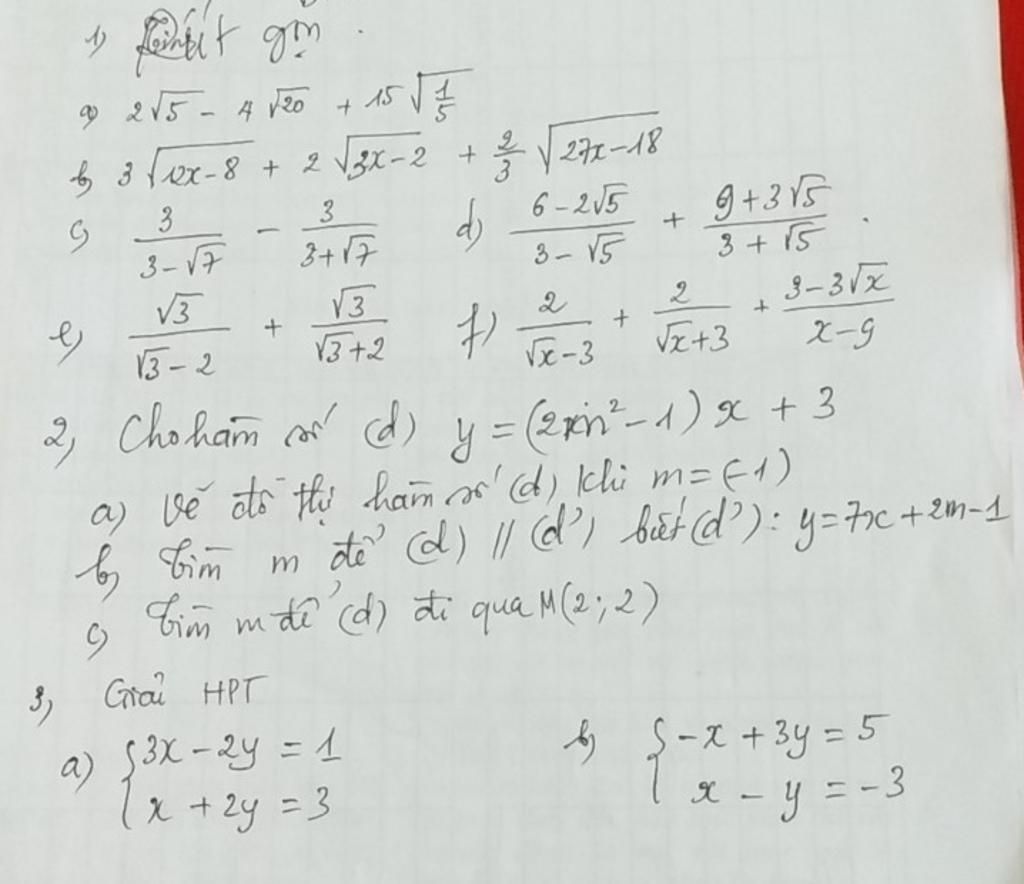 1) Rút gọn.
a) 2√5 - 4√20 + 15√(1/5)
b) 3√(12x-8) + 2√(3x-2) + 2/3 √(27x-18)
c) 3/(3-√7) - 3/(3+√7) d) (6-2√5)/(3-√5) + (9+3√5)/(3+√5).
e) √3/(√3-2) + √3/(√3+2) f) 2/(√x-3) + 2/(√x+3) + (3-3√x)/(x-9)
2, Cho hàm số (d) y = (2m²-1)x + 3
a) Vẽ đồ thị hàm số (d) khi m = (-1)
b) Tìm m để (d) // (d') biết (d'): y = 7x + 2m-1
c) Tìm m để (d) đi qua M(2;2)
3, Giải HPT
a) { 3x - 2y = 1 b) { -x + 3y = 5
x + 2y = 3 x - y = -3